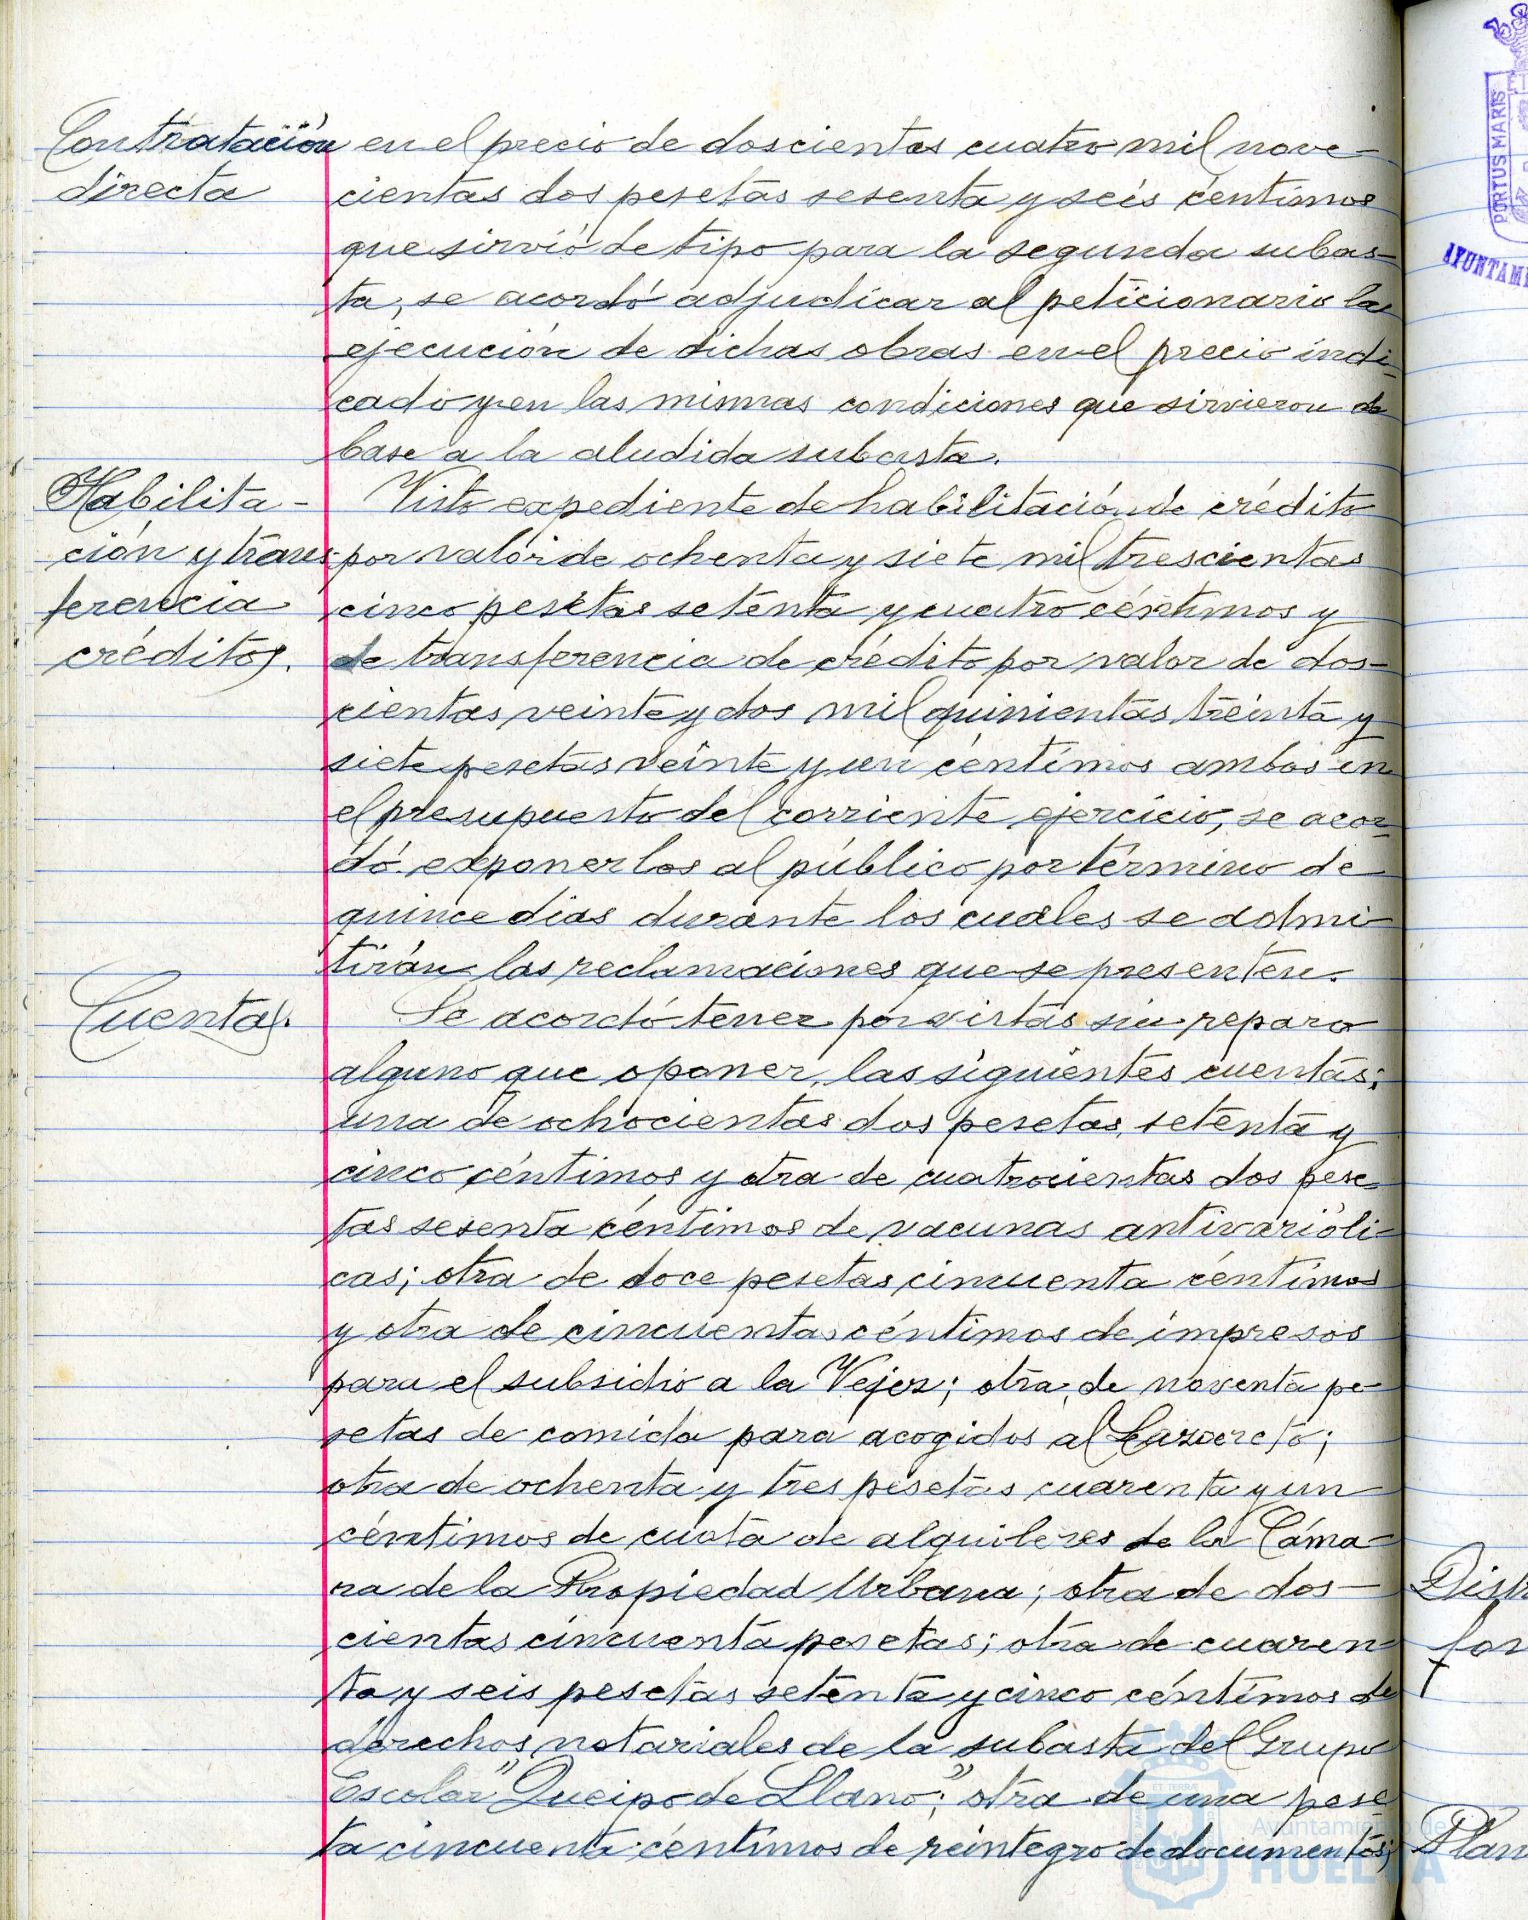 Contratación en el precio de doscientas cuatro mil nove-
directa cientas dos pesetas sesenta y seis céntimos
que sirvió de tipo para la segunda subas-
ta, se acordó adjudicar al peticionario la
ejecución de dichas obras en el precio indi-
cado y en las mismas condiciones que sirvieron de
base a la aludida subasta.
Habilita- Visto expediente de habilitación de crédito
ción y trans- por valor de ochenta y siete mil trescientas
ferencia cinco pesetas setenta y cuatro céntimos y
créditos. de transferencia de crédito por valor de dos-
cientas veinte y dos mil quinientas treinta y
siete pesetas veinte y un céntimos ambos en
el presupuesto del corriente ejercicio, se acor-
dó exponerlos al público por término de
quince dias durante los cuales se admi-
tirán las reclamaciones que se presenten.
Cuentas. Se acordó tener por vistas sin reparo
alguno que oponer, las siguientes cuentas;
una de ochocientas dos pesetas setenta y
cinco céntimos y otra de cuatrocientas dos pese-
tas sesenta céntimos de vacunas antivarióli-
cas; otra de doce pesetas cincuenta céntimos
y otra de cincuenta céntimos de impresos
para el subsidio a la Vejez; otra de noventa pe-
setas de comida para acogidos al Lazareto;
otra de ochenta y tres pesetas cuarenta y un
céntimos de cuota de alquileres de la Cáma-
ra de la Propiedad Urbana; otra de dos-
cientas cincuenta pesetas; otra de cuaren-
ta y seis pesetas setenta y cinco céntimos de
derechos notariales de la subasta del Grupo
Escolar "Queipo de Llano"; otra de una pese-
ta cincuenta céntimos de reintegro de documentos;
PORTUS MARIS
ET TERRÆ
Ayuntamiento de
HUELVA